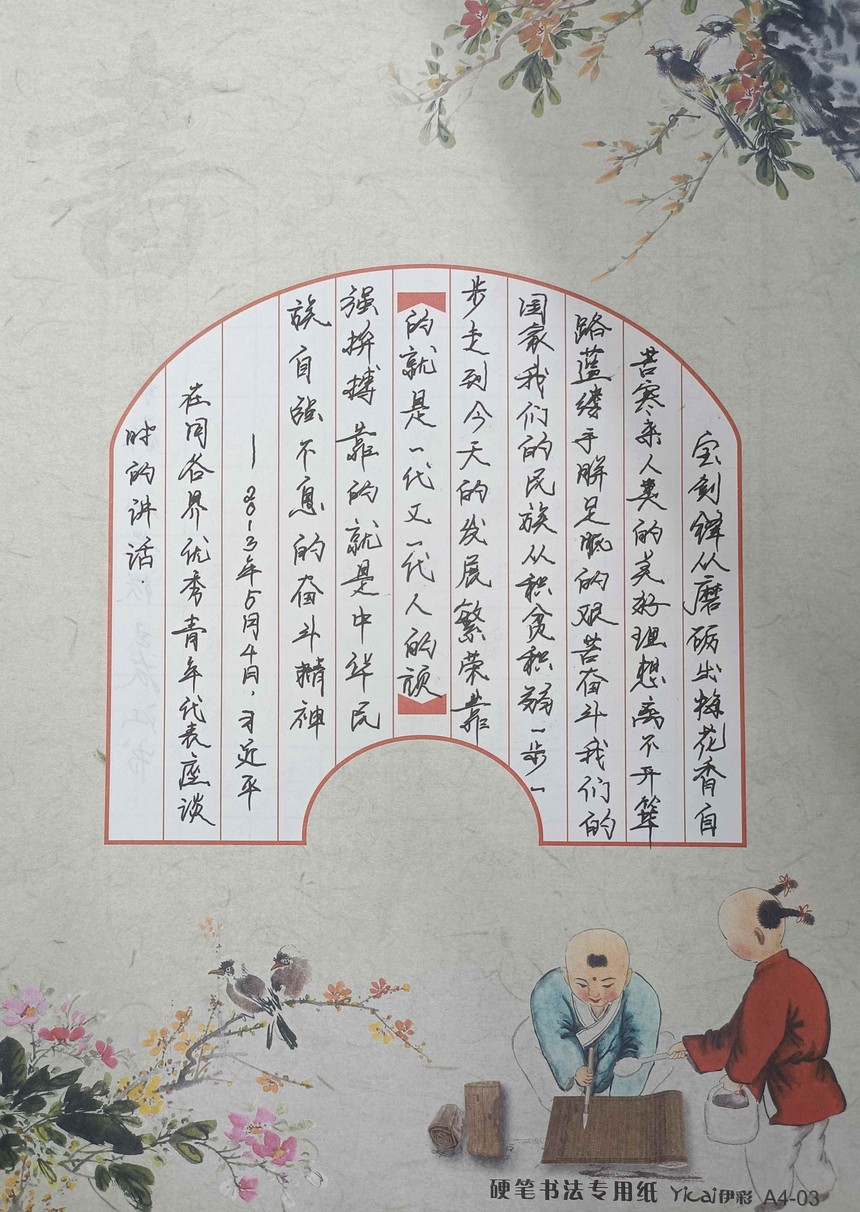 宝剑锋从磨砺出梅花香自
苦寒来人类的美好理想离不开筚
路蓝缕手胼足胝的艰苦奋斗我们的
国家我们的民族从积贫积弱一步一
步走到今天的发展繁荣靠
的就是一代又一代人的顽
强拚搏靠的就是中华民
族自强不息的奋斗精神
—2013年5月4日，习近平
在同各界优秀青年代表座谈
时的讲话.
硬笔书法专用纸 Yicai伊彩 A4-03